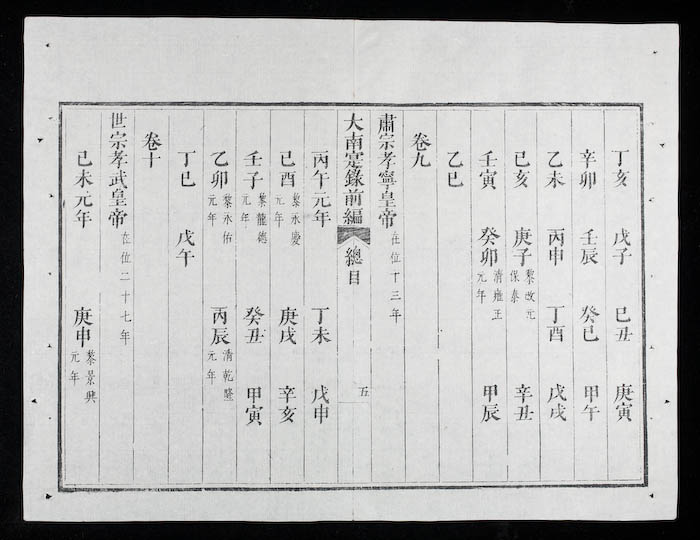 丁亥 戊子 己丑 庚寅
辛卯 壬辰 癸巳 甲午
乙未 丙申 丁酉 戊戌
己亥 庚子黎改元保泰 辛丑
壬寅 癸卯清雍正元年 甲辰
乙巳
卷九
肅宗孝寧皇帝在位十三年
大南寔錄前編 總目 五
丙午元年 丁未 戊申
己酉黎永慶元年 庚戌 辛亥
壬子黎龍德元年 癸丑 甲寅
乙卯黎永佑元年 丙辰清乾隆元年
丁巳 戊午
卷十
世宗孝武皇帝在位二十七年
己未元年 庚申黎景興元年